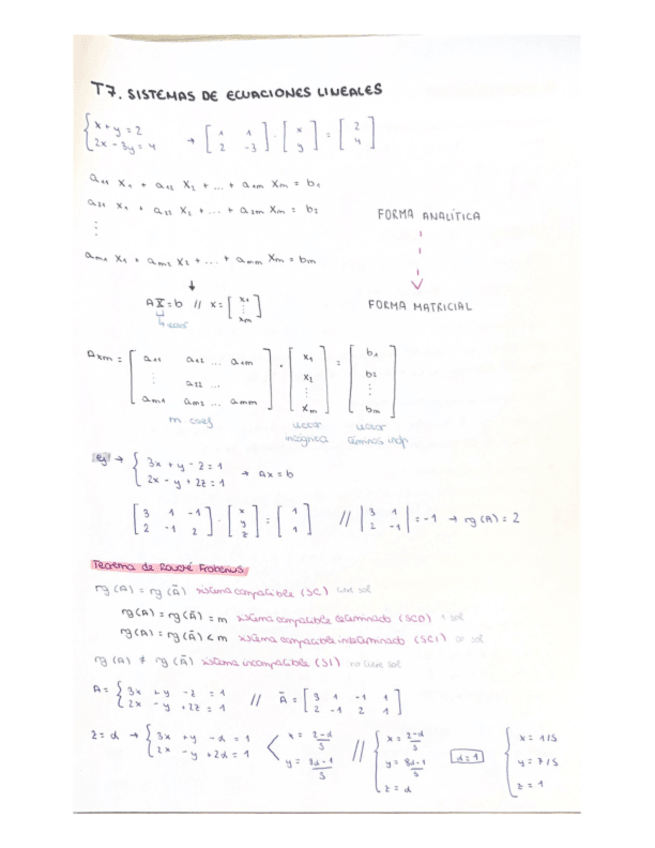 T7. SISTEMAS DE ECUACIONES LINEALES
{x + y = 2
2x - 3y = 4 → [1 1 2 -3] · [x y] = [2 4]
a₁₁ x₁ + a₁₂ x₂ + ... + a₁m xm = b₁
a₂₁ x₁ + a₂₂ x₂ + ... + a₂m xm = b₂
⋮
am₁ x₁ + am₂ x₂ + ... + amm xm = bm
FORMA ANALÍTICA
FORMA MATRICIAL
↓
AX = b // x = [x₁ ⋮ xm]
Axm = [a₁₁ a₁₂ ... a₁m
⋮ a₂₂ ...
am₁ am₂ ... amm] · [x₁ x₂ ⋮ xm] = [b₁ b₂ ⋮ bm]
m coef
vector incógnita
vector términos indp
ej → {3x + y - z = 1
2x - y + 2z = 1 → Ax = b
[3 1 -1
2 -1 2] · [x y z] = [1 1] // |3 1 2 -1| = -1 → rg(A) = 2
Teorema de Rouché Frobenius
rg(A) = rg(Ā) sistema compatible (SC) tiene sol
rg(A) = rg(Ā) = m sistema compatible determinado (SCD) 1 sol
rg(A) = rg(Ā) < m sistema compatible indeterminado (SCI) ∞ sol
rg(A) ≠ rg(Ā) sistema incompatible (SI) no tiene sol
A = {3x + y - z = 1
2x - y + 2z = 1 // Ā = [3 1 -1 1
2 -1 2 1]
z = α → {3x + y - α = 1
2x - y + 2α = 1 < x = 2-α/5
y = 8α-1/5 // {x = 2-α/5
y = 8α-1/5
z = α
α = 1
{x = 1/5
y = 7/5
z = 1